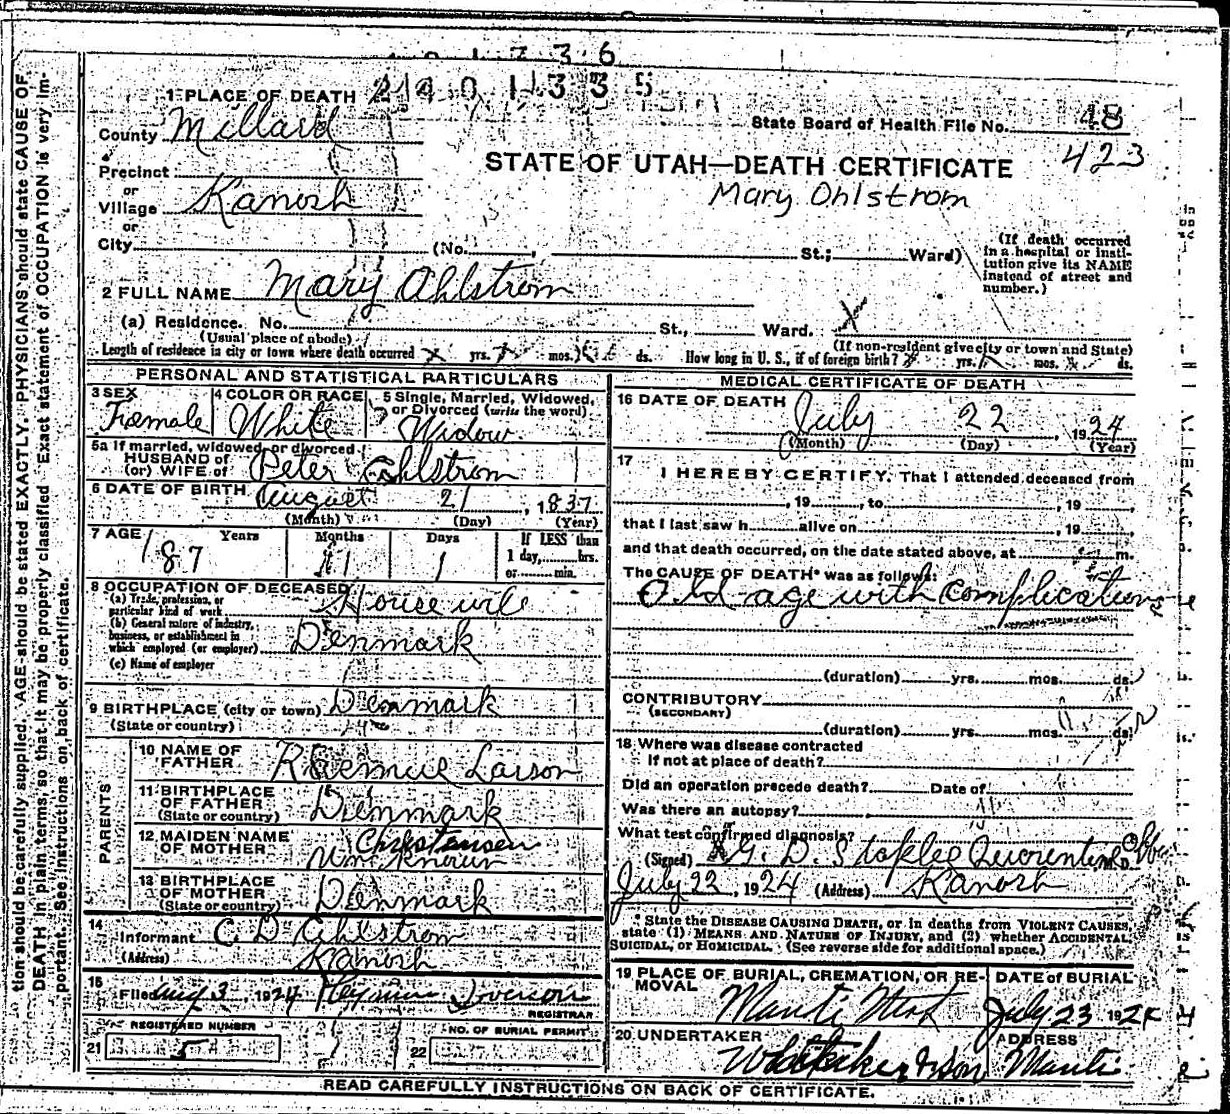 1 PLACE OF DEATH 2401335
County Millard
State Board of Health File No. 48
423
STATE OF UTAH—DEATH CERTIFICATE
Mary Ohlstrom
Precinct
or
Village Kanosh
or
City (No. , St.; Ward)
(If death occurred in a hospital or institution give its NAME instead of street and number.)
2 FULL NAME Mary Ohlstrom
(a) Residence. No. St., Ward.
(Usual place of abode) (If non-resident give city or town and State)
Length of residence in city or town where death occurred yrs. mos. ds. How long in U. S., if of foreign birth? yrs. mos. ds.
PERSONAL AND STATISTICAL PARTICULARS
3 SEX Female
4 COLOR OR RACE White
5 Single, Married, Widowed, or Divorced (write the word) Widow
5a If married, widowed, or divorced
HUSBAND of
(or) WIFE of Peter Ohlstrom
6 DATE OF BIRTH August 21, 1837
(Month) (Day) (Year)
7 AGE Years Months Days If LESS than
87 11 1 1 day, hrs.
or min.
8 OCCUPATION OF DECEASED
(a) Trade, profession, or particular kind of work House wife
(b) General nature of industry, business, or establishment in which employed (or employer) Denmark
(c) Name of employer
9 BIRTHPLACE (city or town) Denmark
(State or country)
PARENTS
10 NAME OF FATHER Larson
11 BIRTHPLACE OF FATHER (State or country) Denmark
12 MAIDEN NAME OF MOTHER Christensen
Unknown
13 BIRTHPLACE OF MOTHER (State or country) Denmark
14 Informant C D Ohlstrom
(Address) Kanosh
15 Filed Aug 3, 1924 Iverson
REGISTRAR
REGISTERED NUMBER NO. OF BURIAL PERMIT
21 5 22
MEDICAL CERTIFICATE OF DEATH
16 DATE OF DEATH July 22, 1924
(Month) (Day) (Year)
17 I HEREBY CERTIFY, That I attended deceased from
, 19 , to , 19 ,
that I last saw h alive on , 19 ,
and that death occurred, on the date stated above, at m.
The CAUSE OF DEATH* was as follows:
Old age with complications
(duration) yrs. mos. ds.
CONTRIBUTORY
(SECONDARY)
(duration) yrs. mos. ds.
18 Where was disease contracted
If not at place of death?
Did an operation precede death? Date of
Was there an autopsy?
What test confirmed diagnosis?
(Signed) G. D. Staples M. D.
July 22, 1924 (Address) Kanosh
* State the DISEASE CAUSING DEATH, or in deaths from VIOLENT CAUSES,
state (1) MEANS AND NATURE OF INJURY, and (2) whether ACCIDENTAL,
SUICIDAL, or HOMICIDAL. (See reverse side for additional space.)
19 PLACE OF BURIAL, CREMATION, OR REMOVAL Manti Utah
DATE of BURIAL July 23 1924
20 UNDERTAKER
ADDRESS Manti
READ CAREFULLY INSTRUCTIONS ON BACK OF CERTIFICATE.
tion should be carefully supplied. AGE should be stated EXACTLY. PHYSICIANS should state CAUSE OF
DEATH in plain terms, so that it may be properly classified. Exact statement of OCCUPATION is very im-
portant. See instructions on back of certificate.